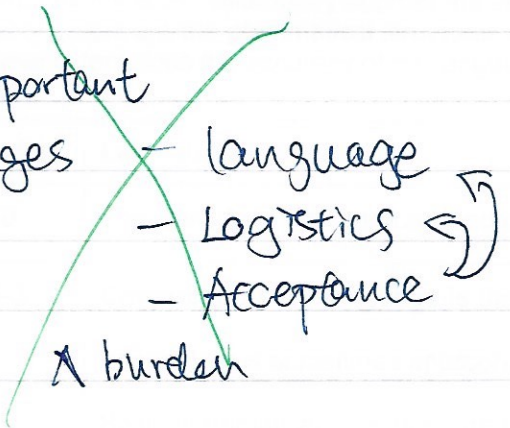 portant
ges - language
- Logistics
- Acceptance
A burden